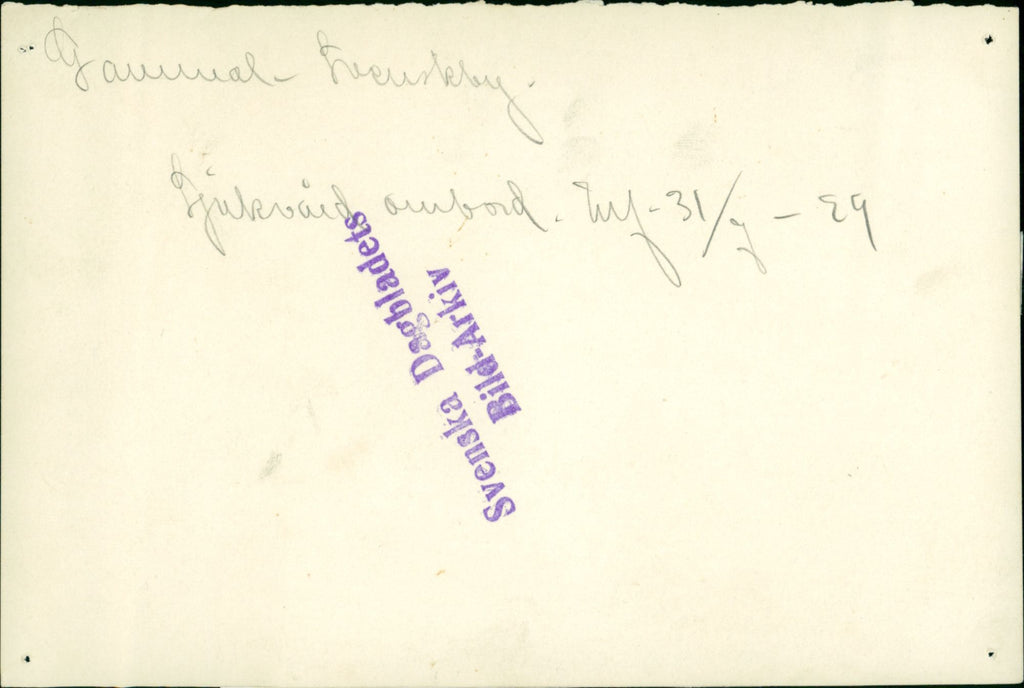 Gammal-Svenskby.
Sjukvård ombord. Inf. 31/7 - 29
Svenska Dagbladets
Bild-Arkiv